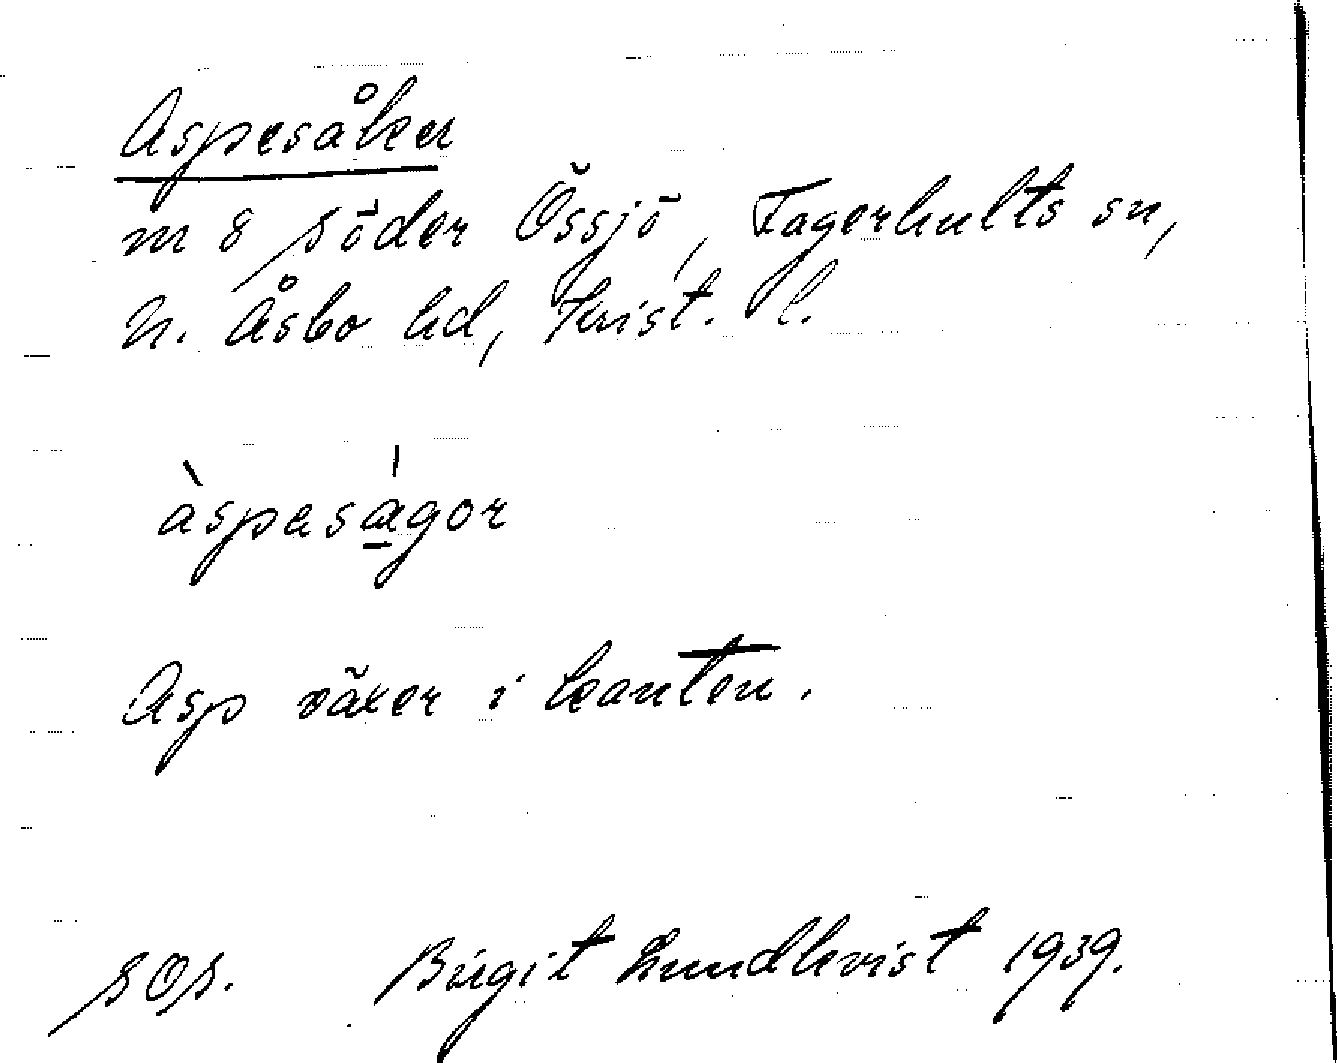 Aspesåker
m 8 Söder Össjö, Fagerhults sn,
N. Åsbo hd, Krist. l.
àspasågor
Asp växer i kanten.
SOS. Birgit Lundkvist 1939.